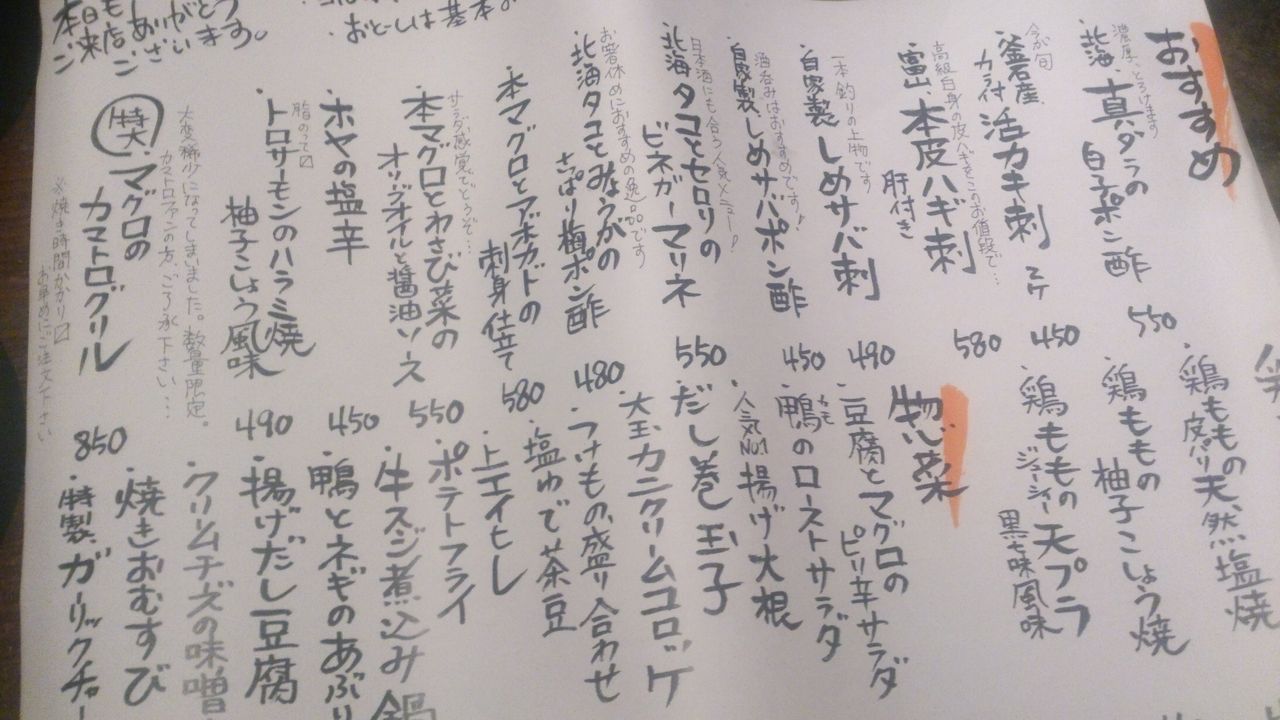 おすすめ
濃厚、とろけます
・北海 真ダラの
白子ポン酢
550
今が旬
・釜石産、
カラ付 活カキ刺 2ケ
450
高級白身の皮ハギをこのお値段で…
・富山、本皮ハギ刺
肝付き
580
一本釣りの上物です
・自家製 しめサバ刺
490
酒呑みはおすすめです!
・自家製、しめサバポン酢
450
日本酒にも合う人気メニュー!
・北海タコとセロリの
ビネガーマリネ
550
お箸休めにおすすめの逸品です
・北海タコとみょうがの
さっぱり梅ポン酢
480
・本マグロとアボカドの
刺身仕立て
580
サラダ感覚でどうぞ…
・本マグロとわさび菜の
オリーブオイルと醤油ソース
550
・ホヤの塩辛
450
脂のって〼
・トロサーモンのハラミ焼
柚子こしょう風味
490
大変稀少になってしまいました。数量限定。
カマトロファンの方、ご了承下さい…
特大 マグロの
カマトログリル
850
※焼き時間かかり〼
お早めにご注文下さい
本日も
ご来店ありがとう
ございます。
おとーしは基本の
・鶏ももの天然塩焼
皮パリ
・鶏ももの
柚子こしょう焼
・鶏ももの天プラ
ジューシィー
黒七味風味
物菜
・豆腐とマグロの
ピリ辛サラダ
・鴨のローストサラダ
カモ
人気No.1 揚げ大根
・だし巻玉子
大玉カニクリームコロッケ
・つけもの盛り合わせ
・塩ゆで茶豆
・エイヒレ
・ポテトフライ
・牛スジ煮込み鍋
・鴨とネギのあぶり
・揚げだし豆腐
・クリームチーズの味噌
・焼きおむすび
・特製、ガーリックチャー